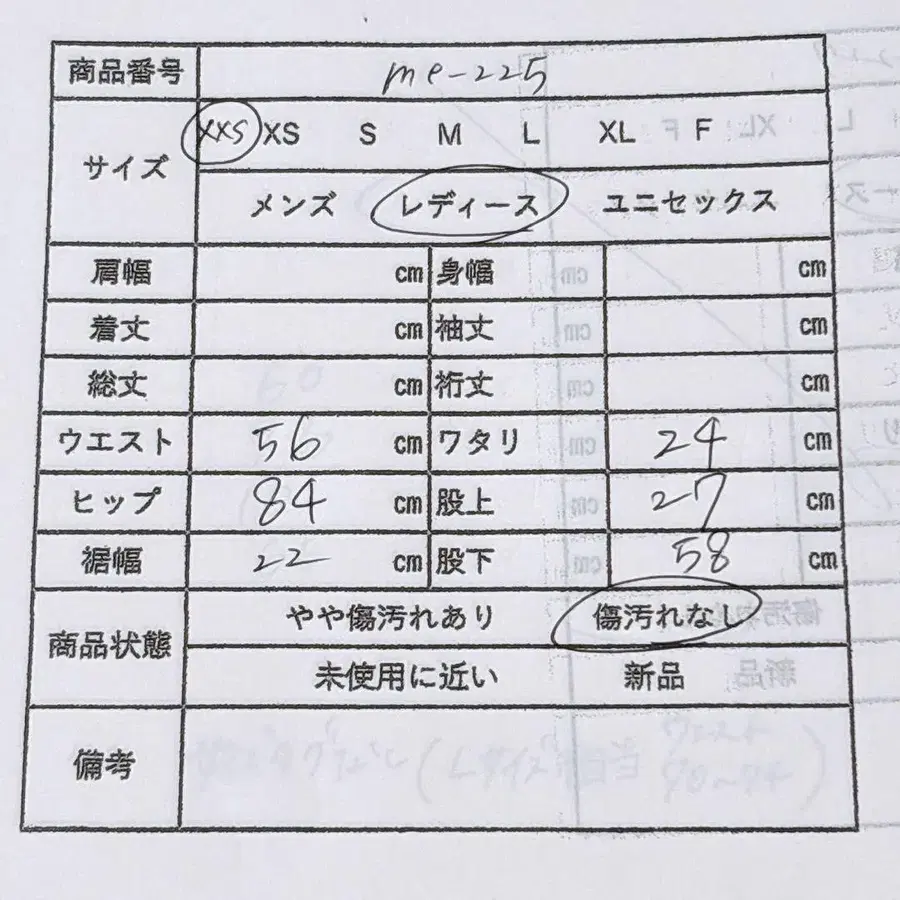 商品番号 me-225
サイズ XXS XS S M L XL F
メンズ レディース ユニセックス
肩幅 cm 身幅 cm
着丈 cm 袖丈 cm
総丈 cm 裄丈 cm
ウエスト 56 cm ワタリ 24 cm
ヒップ 84 cm 股上 27 cm
裾幅 22 cm 股下 58 cm
商品状態 やや傷汚れあり 傷汚れなし
未使用に近い 新品
備考